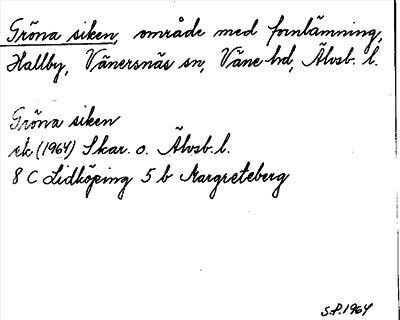 Gröna siken, område med fornlämning,
Hallby, Vänersnäs sn, Väne hd, Älvsb. l.
Gröna siken
ek (1964) Skar. o. Älvsb. l.
8 C Lidköping 5 b Margreteberg
S.P. 1964